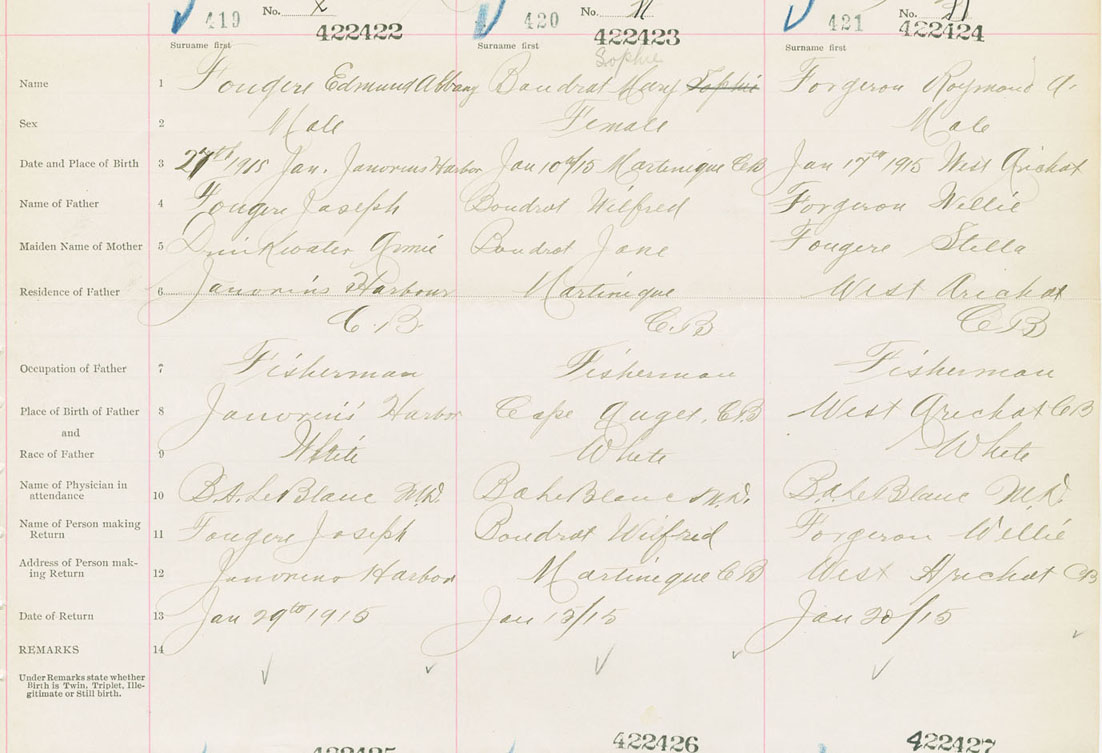 419 No. X 420 No. 11 421 No. 11
422422 422423 422424
Surname first Surname first Surname first
Sophie
Name 1 Fougere Edmund Albany Boudrot Mary Sophie Forgeron Raymond A.
Sex 2 Male Female Male
Date and Place of Birth 3 27th 1915 Jan. Janvrins Harbor Jan 10th/15 Martinique CB Jan 17th 1915 West Arichat
Name of Father 4 Fougere Joseph Boudrot Wilfred Forgeron Willie
Maiden Name of Mother 5 Drinkwater Annie Boudrot Jane Fougere Stella
Residence of Father 6 Janvrins Harbour Martinique West Arichat
C.B C.B CB
Occupation of Father 7 Fisherman Fisherman Fisherman
Place of Birth of Father 8 Janvrin's Harbor Cape Auget, C.B West Arichat CB
and
Race of Father 9 White White White
Name of Physician in
attendance 10 B.A. LeBlanc M.D. B.A. LeBlanc M.D. B.A. LeBlanc M.D.
Name of Person making
Return 11 Fougere Joseph Boudrot Wilfred Forgeron Willie
Address of Person mak-
ing Return 12 Janvrins Harbor Martinique CB West Arichat CB
Date of Return 13 Jan 29th 1915 Jan 15/15 Jan 20/15
REMARKS 14
Under Remarks state whether
Birth is Twin, Triplet, Ille-
gitimate or Still birth.
422425 422426 422427